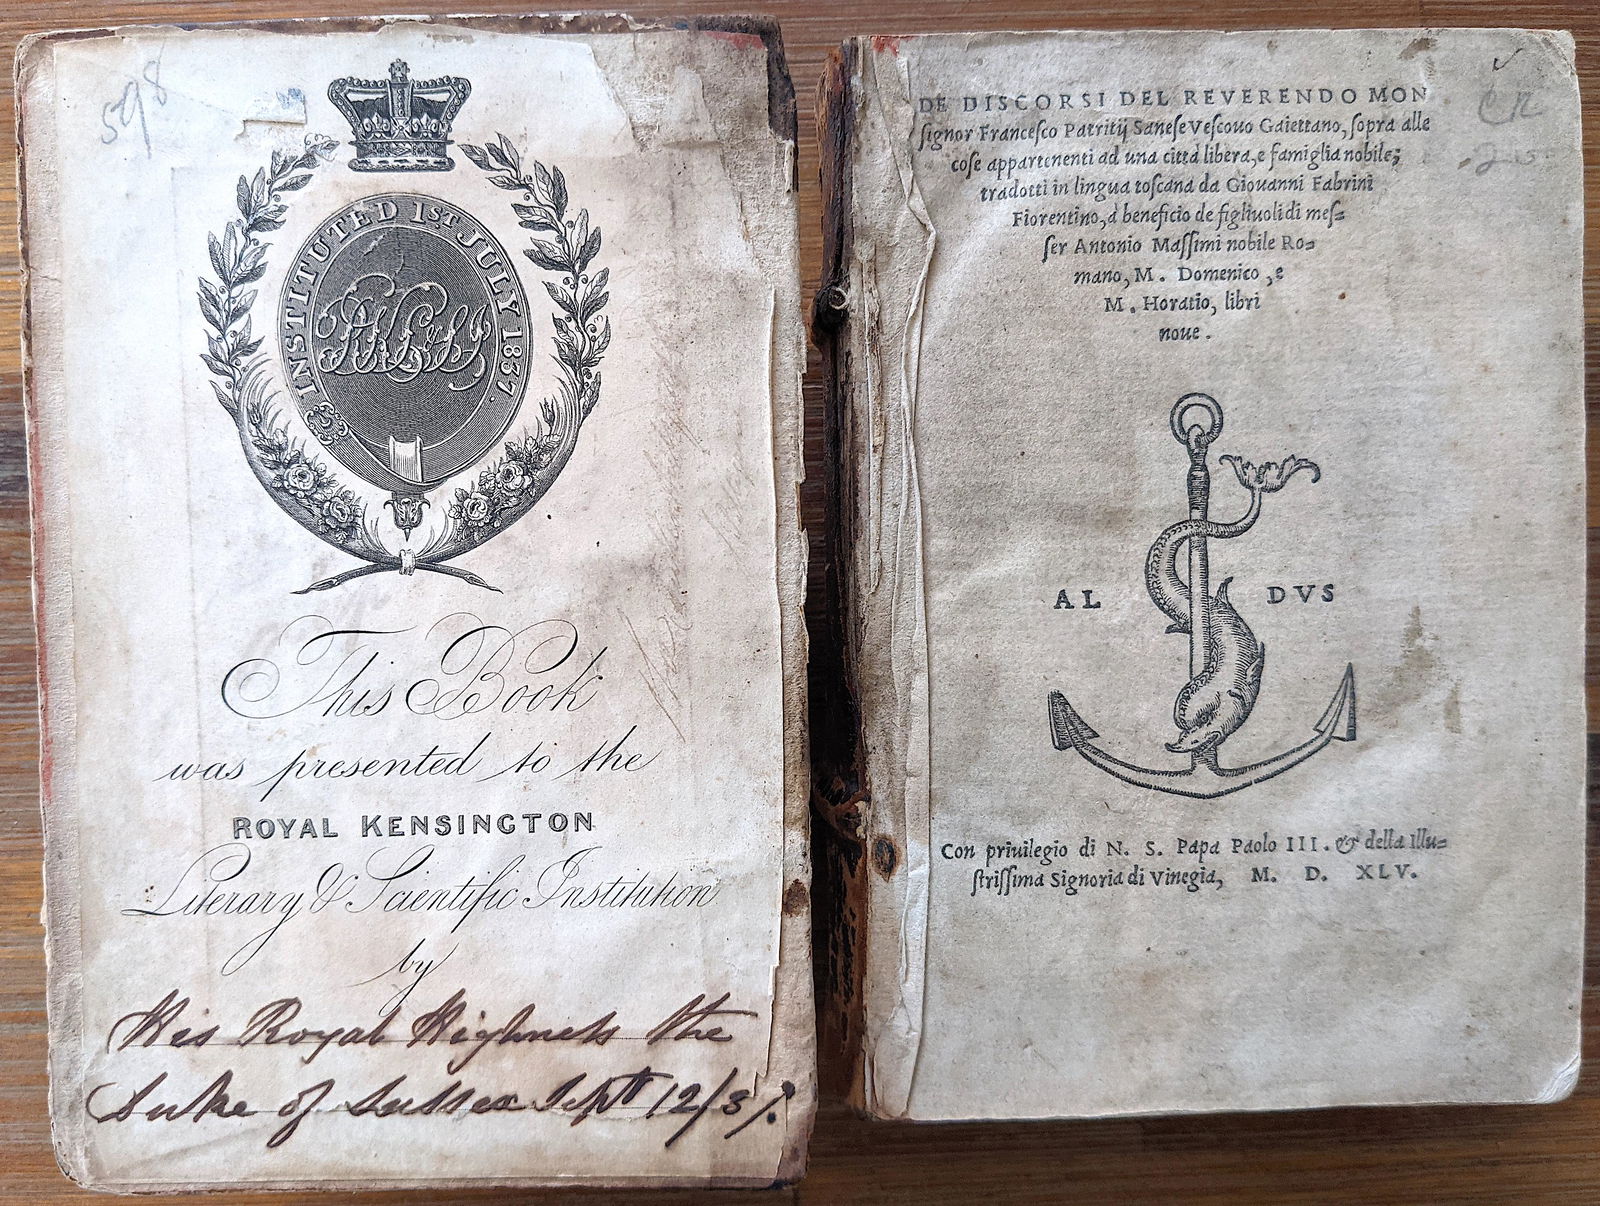 598
INSTITUTED 1ST JULY 1837.
RKL&SI
This Book
was presented to the
ROYAL KENSINGTON
Literary & Scientific Institution
by
His Royal Highness the
Duke of Sussex Septr 12/37.
DE DISCORSI DEL REVERENDO MON
signor Francesco Patritij Sanese Vescouo Gaiettano, sopra alle
cose appartenenti ad una città libera, e famiglia nobile;
tradotti in lingua toscana da Giouanni Fabrini
Fiorentino, à beneficio de figliuoli di mes=
ser Antonio Massimi nobile Ro=
mano, M. Domenico, e
M. Horatio, libri
noue.
AL DVS
Con priuilegio di N. S. Papa Paolo III. & della Illu=
strissima Signoria di Vinegia, M. D. XLV.